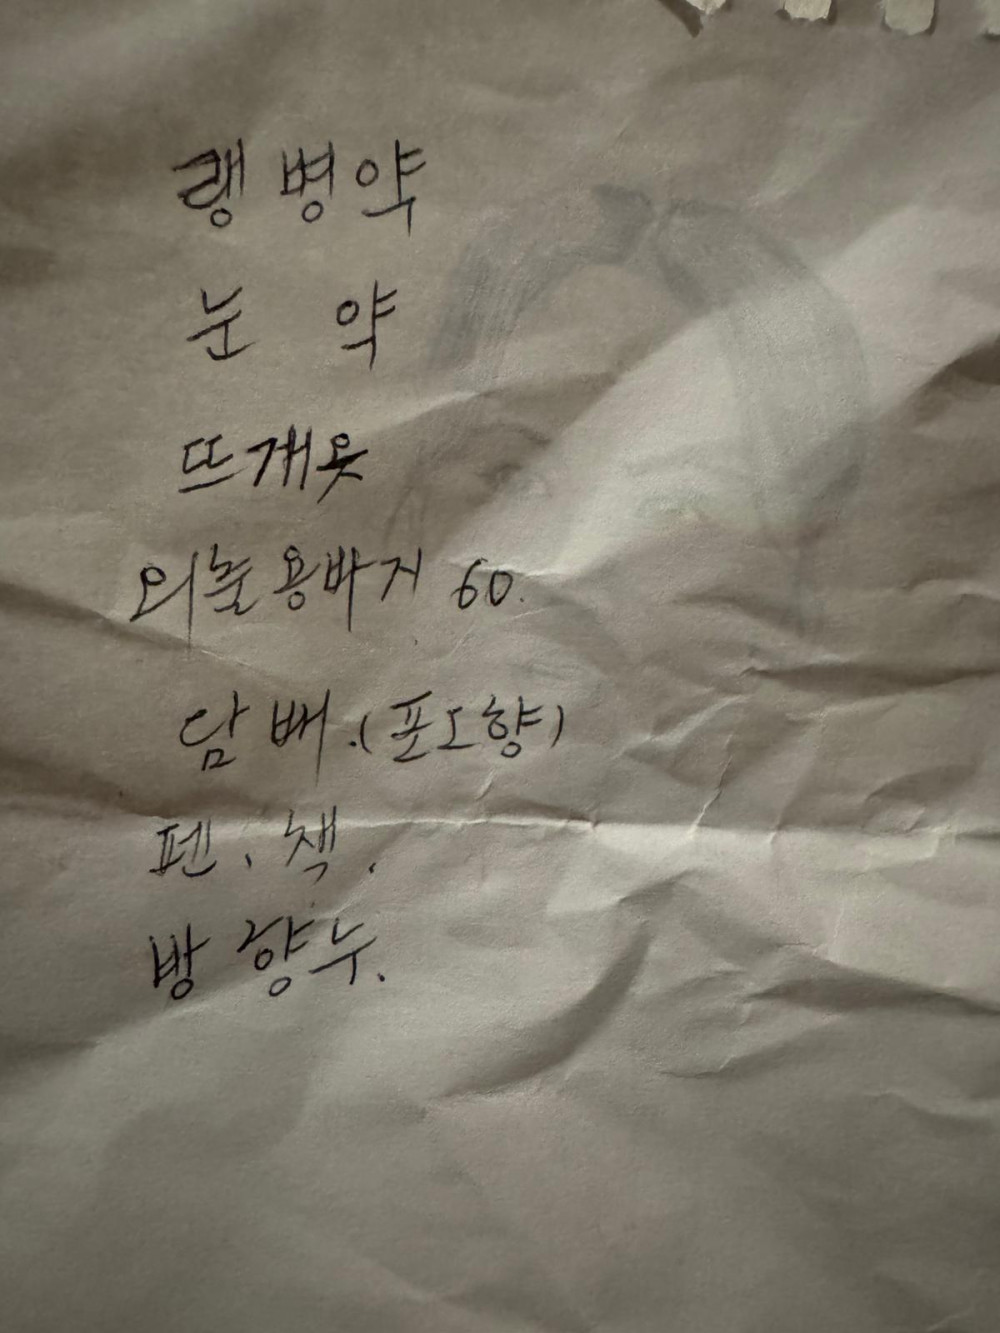 랭병약
눈 약
뜨개옷
외출용바지 60.
담배.(포도향)
펜. 책.
방향누.